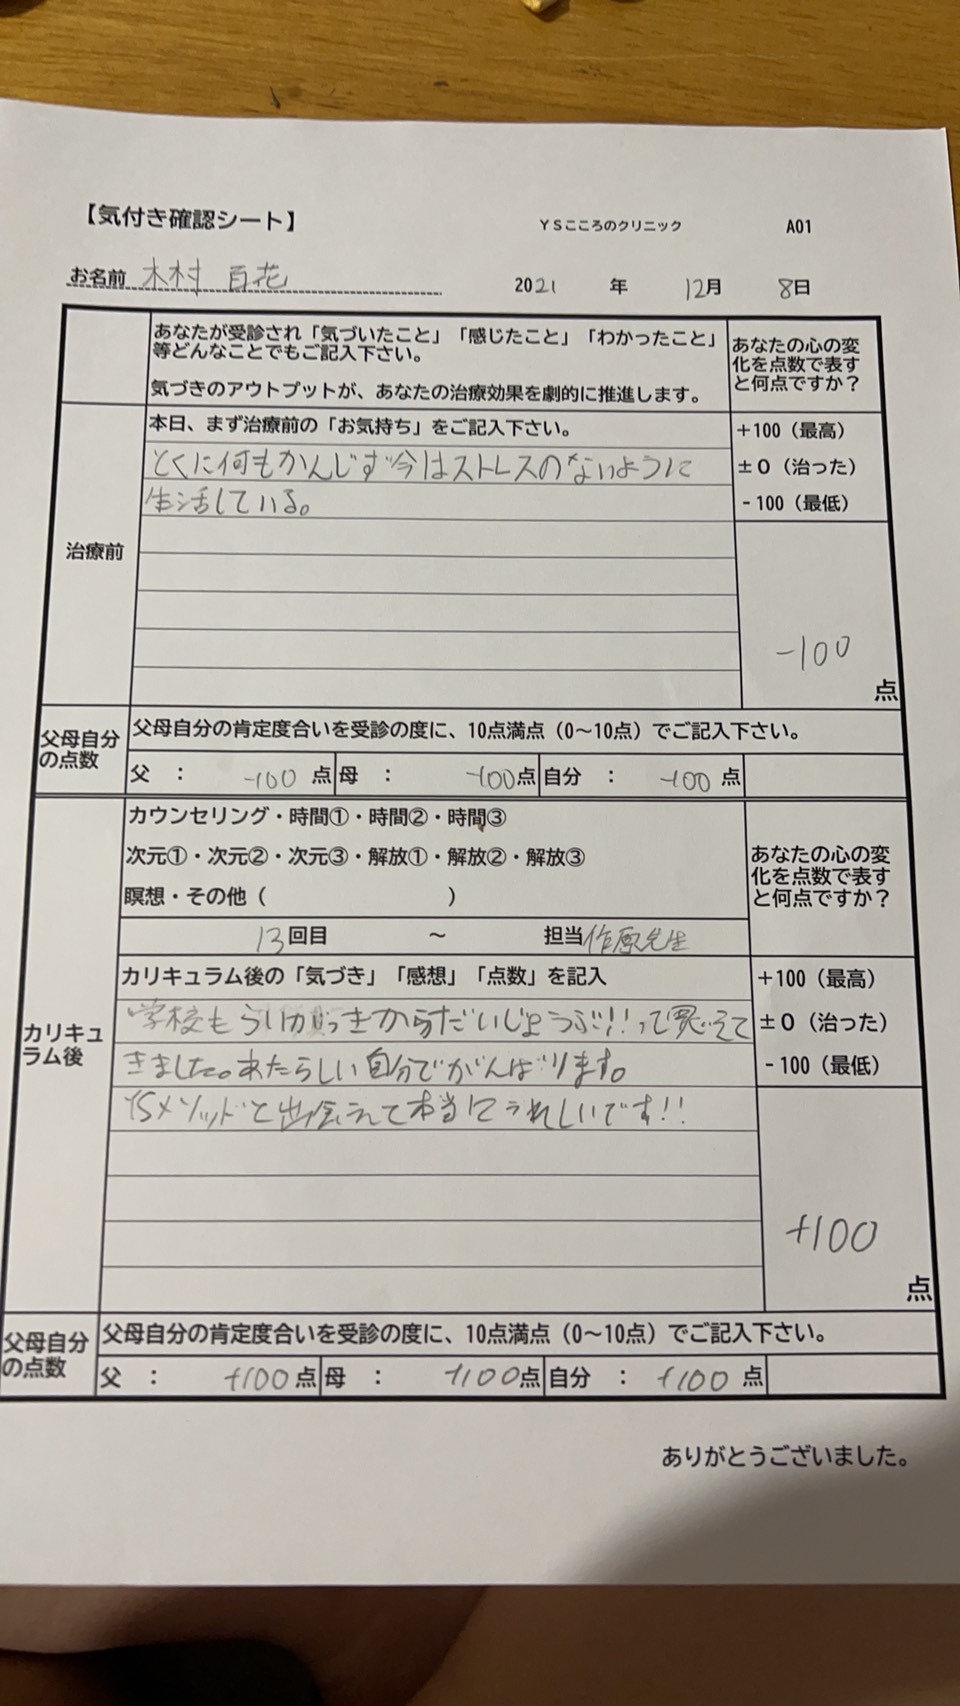 【気付き確認シート】
YSこころのクリニック A01
お名前 木村 百花 2021年 12月 8日
あなたが受診され「気づいたこと」「感じたこと」「わかったこと」
等どんなことでもご記入下さい。
気づきのアウトプットが、あなたの治療効果を劇的に推進します。
あなたの心の変
化を点数で表す
と何点ですか？
治療前
本日、まず治療前の「お気持ち」をご記入下さい。
とくに何もかんじず今はストレスのないように
生活している。
+100（最高）
±0（治った）
-100（最低）
-100
点
父母自分
の点数
父母自分の肯定度合いを受診の度に、10点満点（0～10点）でご記入下さい。
父 ： -100 点 母 ： -100点 自分 ： -100 点
カリキュ
ラム後
カウンセリング・時間①・時間②・時間③
次元①・次元②・次元③・解放①・解放②・解放③
瞑想・その他（ ）
あなたの心の変
化を点数で表す
と何点ですか？
13回目 ～ 担当 作原先生
カリキュラム後の「気づき」「感想」「点数」を記入
学校もらいがっきからだいじょうぶ!!って思えて
きました。あたらしい自分でがんばります。
YSメソッドと出会えて本当にうれしいです!!
+100（最高）
±0（治った）
-100（最低）
+100
点
父母自分
の点数
父母自分の肯定度合いを受診の度に、10点満点（0～10点）でご記入下さい。
父 ： +100点 母 ： +100点 自分 ： +100 点
ありがとうございました。